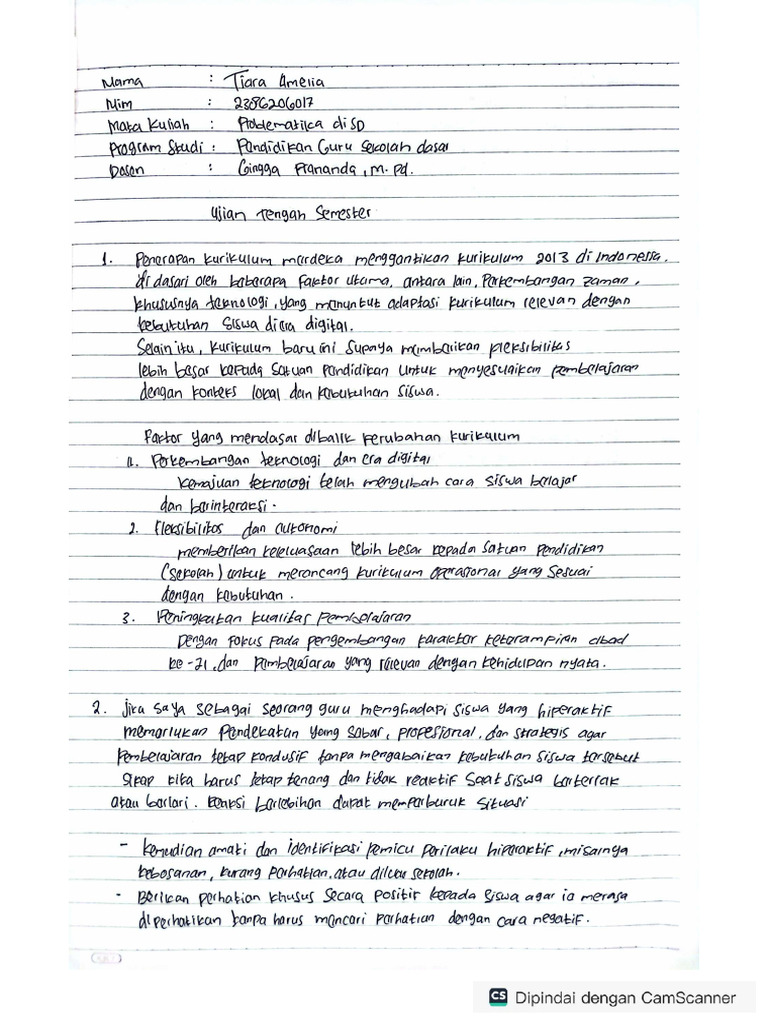 Nama : Tiara Amelia
Nim : 2386206017
Mata Kuliah : Problematika di SD
Program Studi : Pendidikan Guru Sekolah dasar
Dosen : Gingga Prananda, M. Pd.
Ujian Tengah Semester
1. Penerapan kurikulum merdeka menggantikan kurikulum 2013 di Indonesia.
di dasari oleh beberapa faktor utama, antara lain, Perkembangan zaman,
khususnya teknologi, yang menuntut adaptasi kurikulum relevan dengan
kebutuhan siswa diera digital.
Selain itu, kurikulum baru ini supaya memberikan fleksibilitas
lebih besar kepada satuan pendidikan untuk menyesuaikan pembelajaran
dengan konteks lokal dan kebutuhan siswa.
Faktor yang mendasar dibalik perubahan kurikulum
1. Perkembangan teknologi dan era digital
kemajuan teknologi telah mengubah cara siswa belajar
dan berinteraksi.
2. Fleksibilitas dan autonomi
memberikan keleluasaan lebih besar kepada satuan pendidikan
(sekolah) untuk merancang kurikulum operasional yang sesuai
dengan kebutuhan.
3. Peningkatan kualitas pembelajaran
Dengan fokus pada pengembangan karakter keterampilan abad
ke-21, dan pembelajaran yang relevan dengan kehidupan nyata.
2. Jika saya sebagai seorang guru menghadapi siswa yang hiperaktif
memerlukan pendekatan yang sabar, propesional, dan strategis agar
pembelajaran tetap kondusif tanpa mengabaikan kebutuhan siswa tersebut
sikap kita harus tetap tenang dan tidak reaktif saat siswa berteriak
atau berlari. Reaksi berlebihan dapat memperburuk situasi
- Kemudian amati dan identifikasi pemicu perilaku hiperaktif, misalnya
kebosanan, kurang perhatian, atau diluar sekolah.
- Berikan perhatian khusus secara positif kepada siswa agar ia merasa
diperhatikan tanpa harus mencari perhatian dengan cara negatif.
CS Dipindai dengan CamScanner